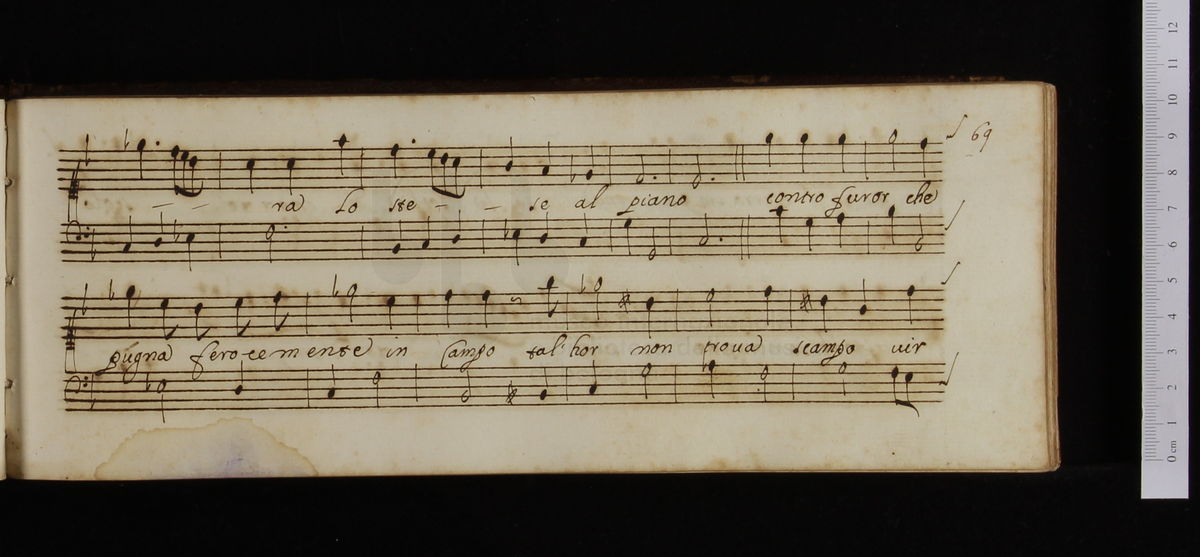 69
ra lo ste - - se al piano contro furor che
pugna ferocemente in campo tal'hor non trova scampo vir
0 cm 1 2 3 4 5 6 7 8 9 10 11 12